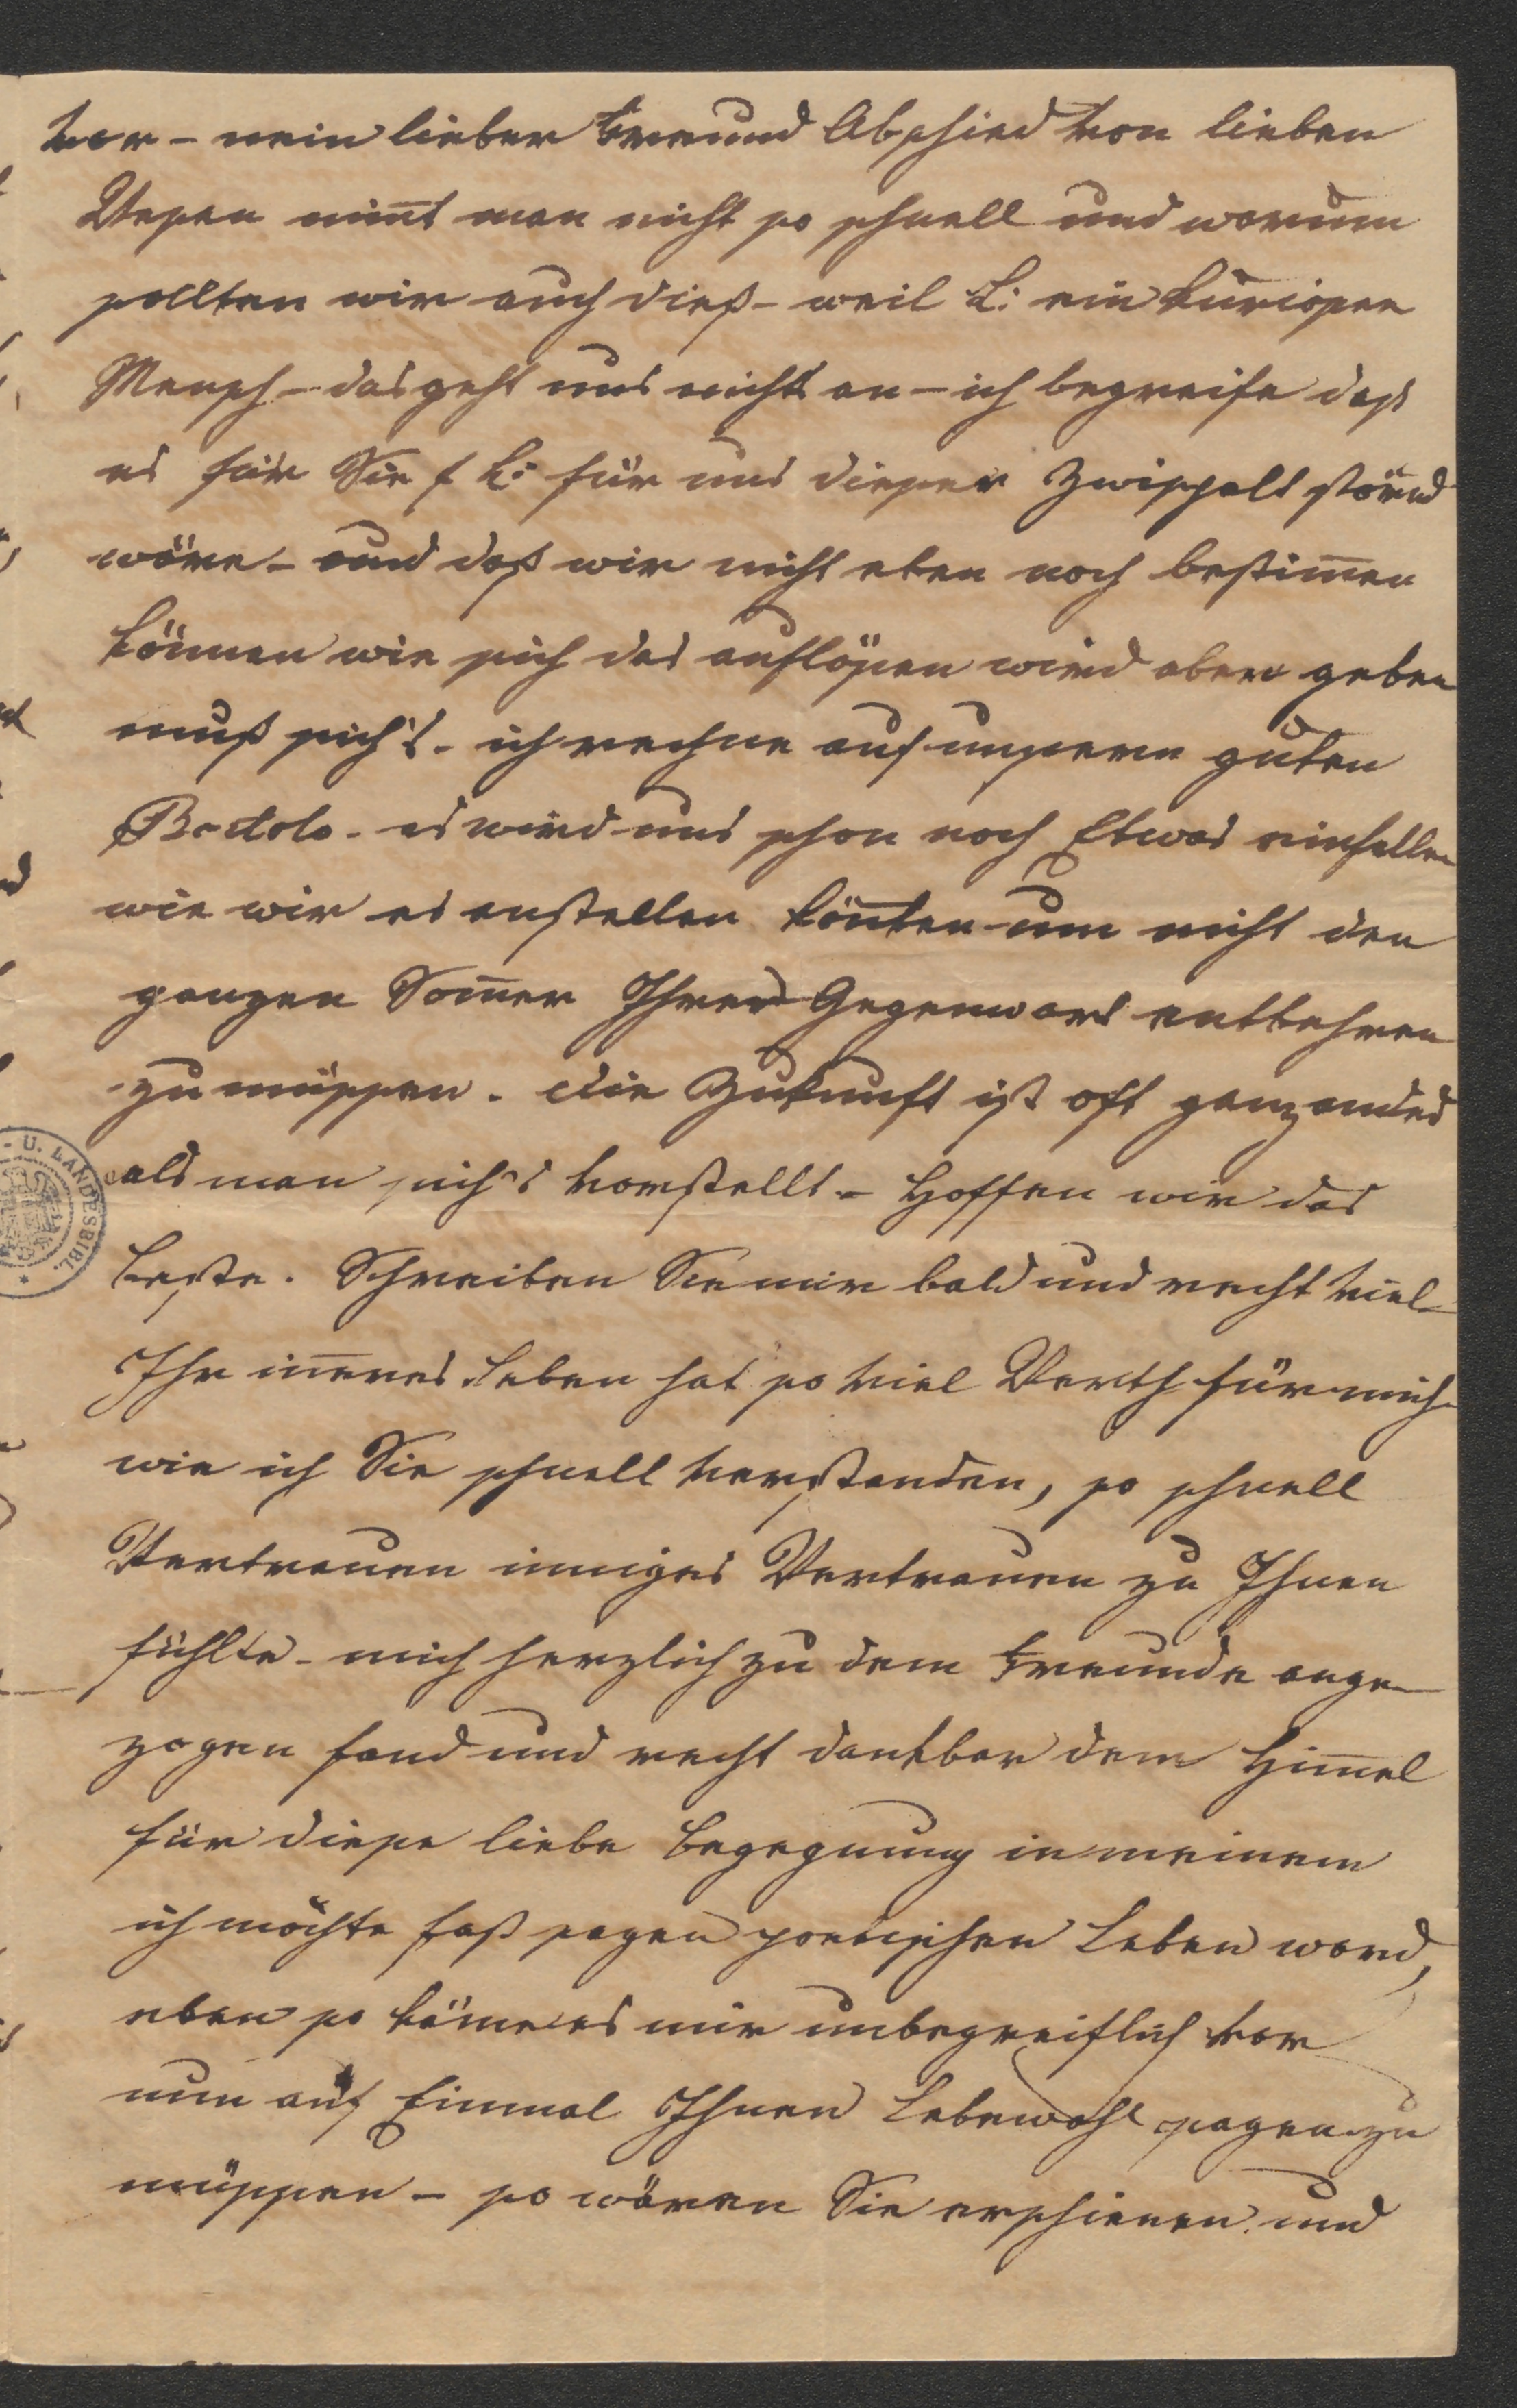 vor – nein lieber Freund Abschied von lieben
Wesen nim̄t man nicht so schnell und warum
sollten wir auch dieß – weil L: ein kurioser
Mensch – das geht uns nichts an – ich begreife daß
es für Sie f L: für uns dieser Zwispalt störend
wäre – und daß wir nicht eben noch bestim̄en
können wie sich das auflösen wird aber geben
muß sich's – ich rechne auf unseren guten
Bartolo – es wird uns schon noch Etwas einfallen
wie wir es anstellen kön̄ten um nicht den
ganzen Som̄er Ihrer Gegenwart entbehren
zu müssen. Die Zukunft ist oft ganz anders
als man sich's vorstellt – Hoffen wir das
Beste. Schreiben Sie mir bald und recht viel –
Ihr in̄eres Leben hat so viel Werth für mich –
wie ich Sie schnell verstanden, so schnell
Vertrauen inniges Vertrauen zu Ihnen
fühlte – mich herzlich zu dem Freunde ange–
zogen fand und recht dankbar dem Him̄el
für diese liebe Begegnung in meinem
ich möchte fast sagen poetischen Leben ward,
eben so käme es mir unbegreiflich vor
nun auf Einmal Ihnen Lebewohl sagen zu
müssen – so wären Sie erschienen und
- U. LANDESBIBL.